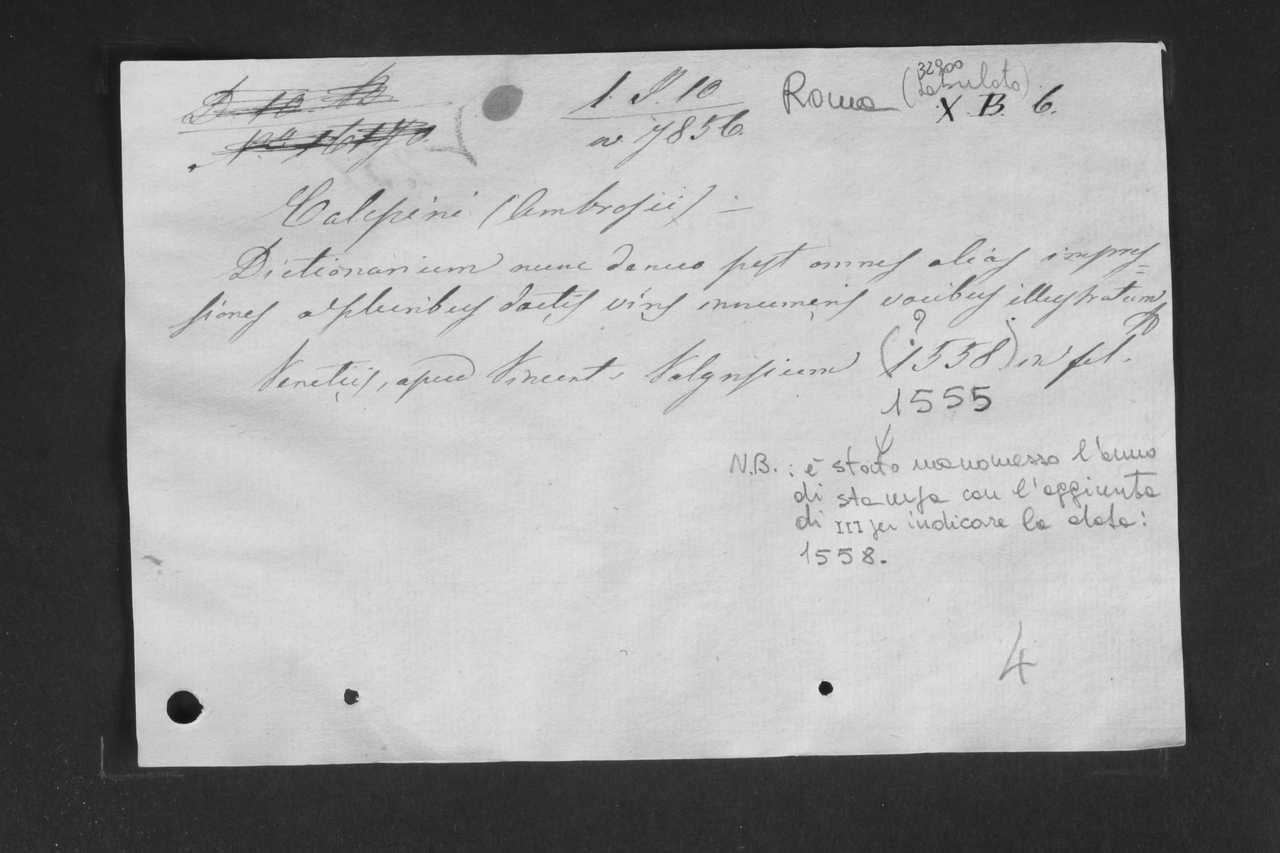 D. 10. 12
1. P. 10
Roma (32900
Tabulato)
X. B. 6.
a 7856.
Calepini (Ambrosii) -
Dictionarium nunc denuo post omnes alias impres=
siones a pluribus doctis viris innumeris vocibus illustratum
Venetiis, apud Vincent. Valgrisium (1558) in fol.
?
1555
N.B. : è stato manomesso l'anno
di stampa con l'aggiunta
di III per indicare la data:
1558.
4